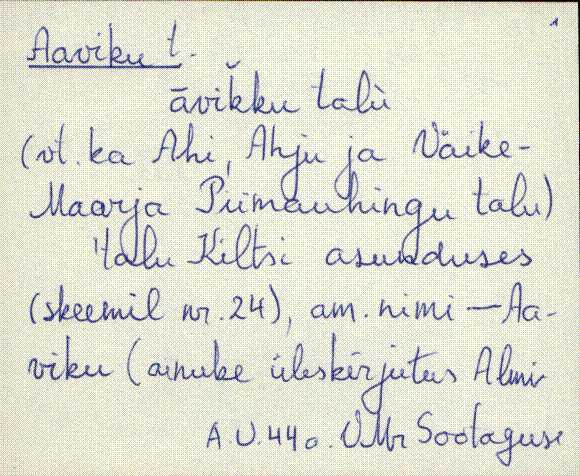 1
Aaviku t.
āvik̆ku talù
(vt. ka Ahi, Ahju ja Väike-
Maarja Piimauhingu talu)
talu Kiltsi asunduses
(skeemil nr. 24), am. nimi — Aa-
viku (ainuke üleskirjutus Almi
A U. 44 a. VMr Sootaguse